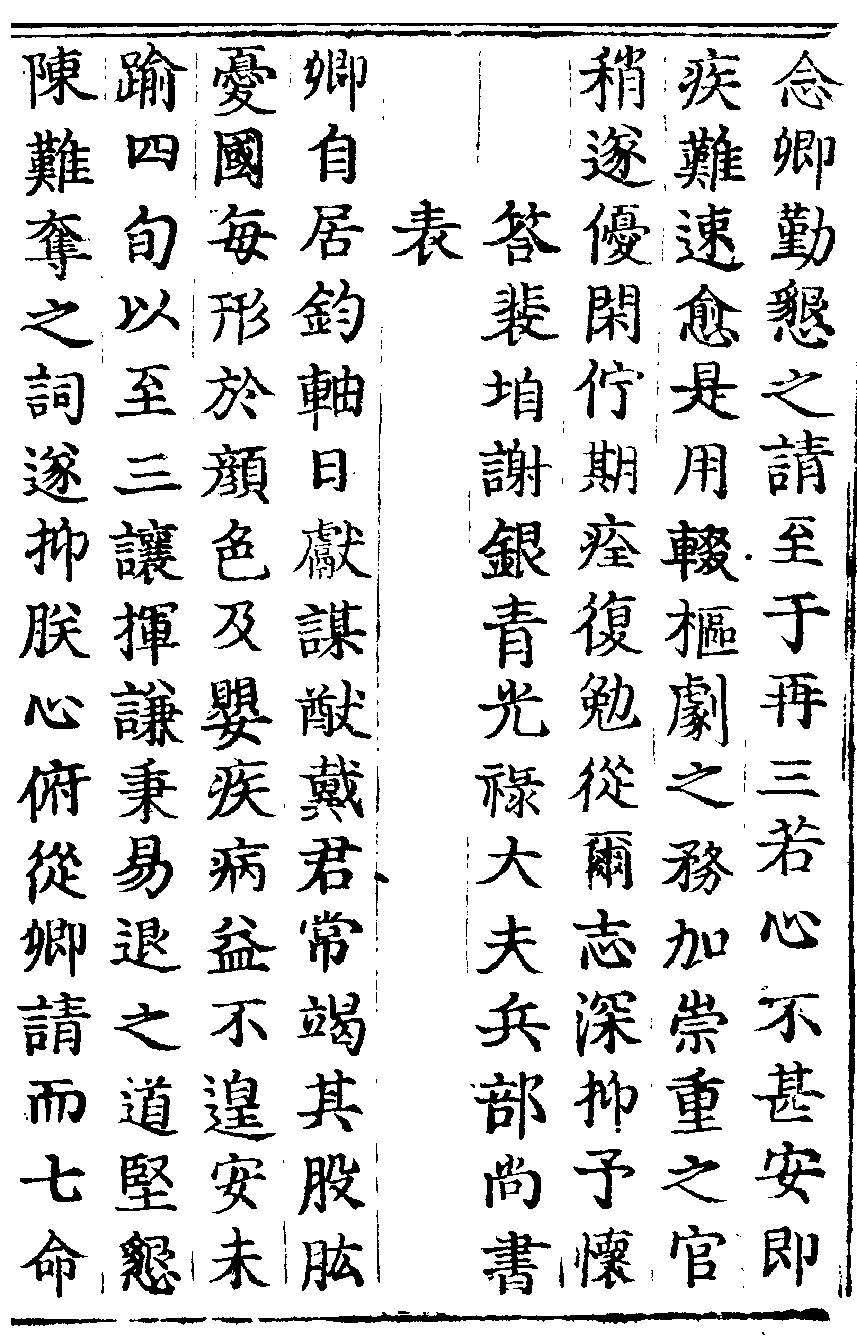 念卿勤懇之請至于再三若心不甚安即
疾難速愈是用輟樞劇之務加崇重之官
稍遂優閑佇期痊復勉從爾志深抑予懷
答裴垍謝銀青光祿大夫兵部尚書
表
卿自居鈞軸日獻謀猷戴君常竭其股肱
憂國每形於顔色及嬰疾病益不遑安未
踰四旬以至三讓揮謙秉易退之道堅懇
陳難奪之詞遂抑朕心俯從卿請而七命